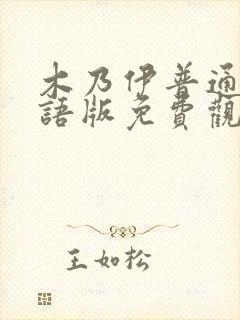 木乃伊普通
語版免費觀
王如松